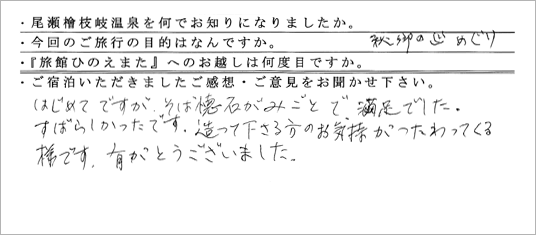 ・尾瀬檜枝岐温泉を何でお知りになりましたか。
・今回のご旅行の目的はなんですか。 秘郷の湯めぐり
・『旅館ひのえまた』へのお越しは何度目ですか。
・ご宿泊いただきましたご感想・ご意見をお聞かせ下さい。
はじめてですが、そば懐石がみごとで、満足でした。
すばらしかったです。造って下さる方のお気持がつたわってくる
様です。有がとうございました。